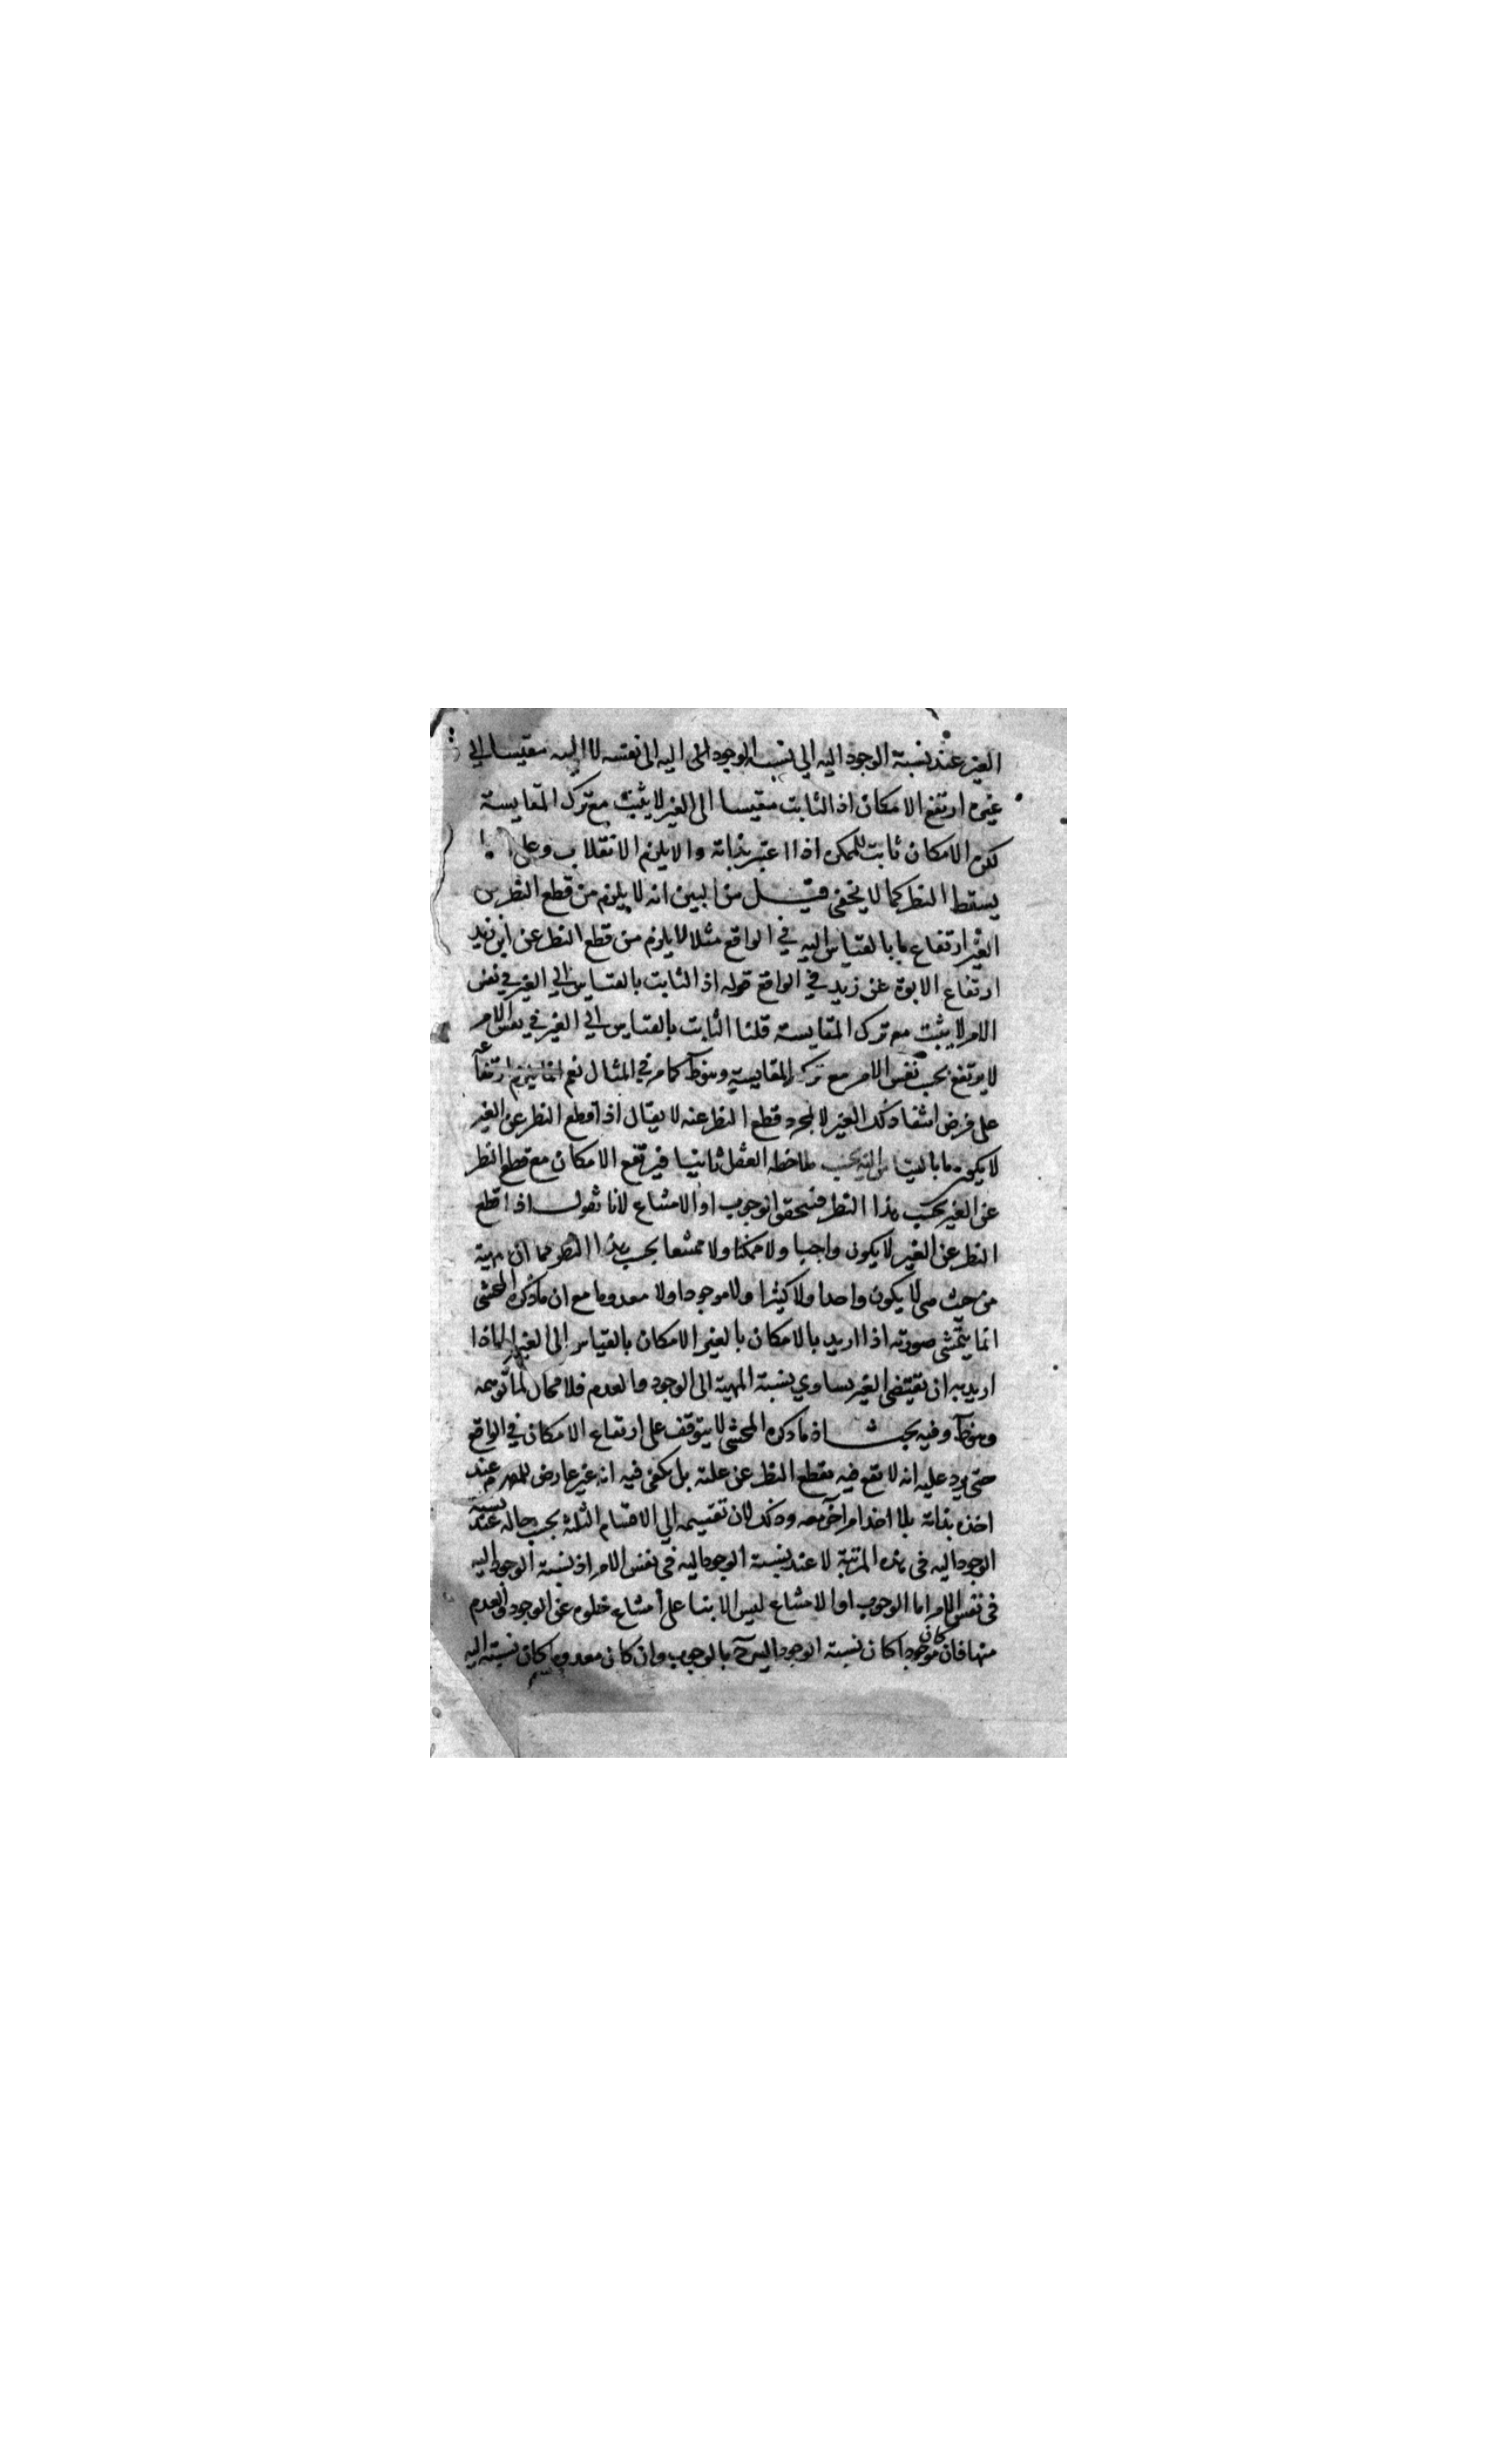 الغير عند نسبة الوجود اليه الى نسبة الوجود الى اليه الى نفسه لا اليه مقيسا الى
غيره ارتفع الامكان اذ الثابت مقيسا الى الغير لا يثبت مع ترك المقايسة
لكن الامكان ثابت للممكن اذا اعتبر بذاته والا يلزم الانقلاب وعلى
يسقط النظر كما لا يخفى قيل من البين انه لا يلزم من قطع النظر عن
الغير ارتفاع ما بالقياس اليه في الواقع مثلا لا يلزم من قطع النظر عن ابن زيد
ارتفاع الابوة عن زيد في الواقع قوله اذ الثابت بالقياس الى الغير في نفس
الامر لا يثبت مع ترك المقايسة قلنا الثابت بالقياس الى الغير في نفس الامر
لا يرتفع بحسب نفس الامر مع ترك المقايسة وهو ظ كما مر في المثال نعم انما يلزم ارتفاعه
على فرض انتفاء ذلك الغير لا بمجرد قطع النظر عنه لا يقال اذا قطع النظر عن الغير
لا يكون ما بالقياس اليه بحسب ملاحظة العقل ثابتا فيرتفع الامكان مع قطع النظر
عن الغير بحسب هذا النظر فيتحقق الوجوب او الامتناع لانا نقول اذا قطع
النظر عن الغير لا يكون واجبا ولا ممكنا ولا ممتنعا بحسب هذا النظر كما ان مهية
من حيث هي لا يكون واحدا ولا كثيرا ولا موجودا ولا معدوما مع ان ما ذكره المحشى
انما يتمشى صورته اذا اريد بالامكان بالغير الامكان بالقياس الى الغير اما اذا
اريد به ان يقتضى الغير تساوي نسبة المهية الى الوجود والعدم فلا مجال لما توهمه
وهو ظ وفيه بحث اذ ما ذكره المحشى لا يتوقف على ارتفاع الامكان في الواقع
حتى يرد عليه انه لا يقع فيه بقطع النظر عن علته بل يكفى فيه انه غير عارض للمفهوم عند
اخذه بذاته بلا اخذ امر آخر معه وذلك لان تقسيمه الى الاقسام الثلثة بحسب حاله عند نسبة
الوجود اليه في هذه المرتبة لا عند نسبة الوجود اليه في نفس الامر اذ نسبة الوجود اليه
في نفس الامر اما الوجوب او الامتناع ليس الا بناء على امتناع خلوه عن الوجود والعدم
منها فان كان موجودا كان نسبة الوجود اليه ح بالوجوب وان كان معدوما كان نسبته اليه